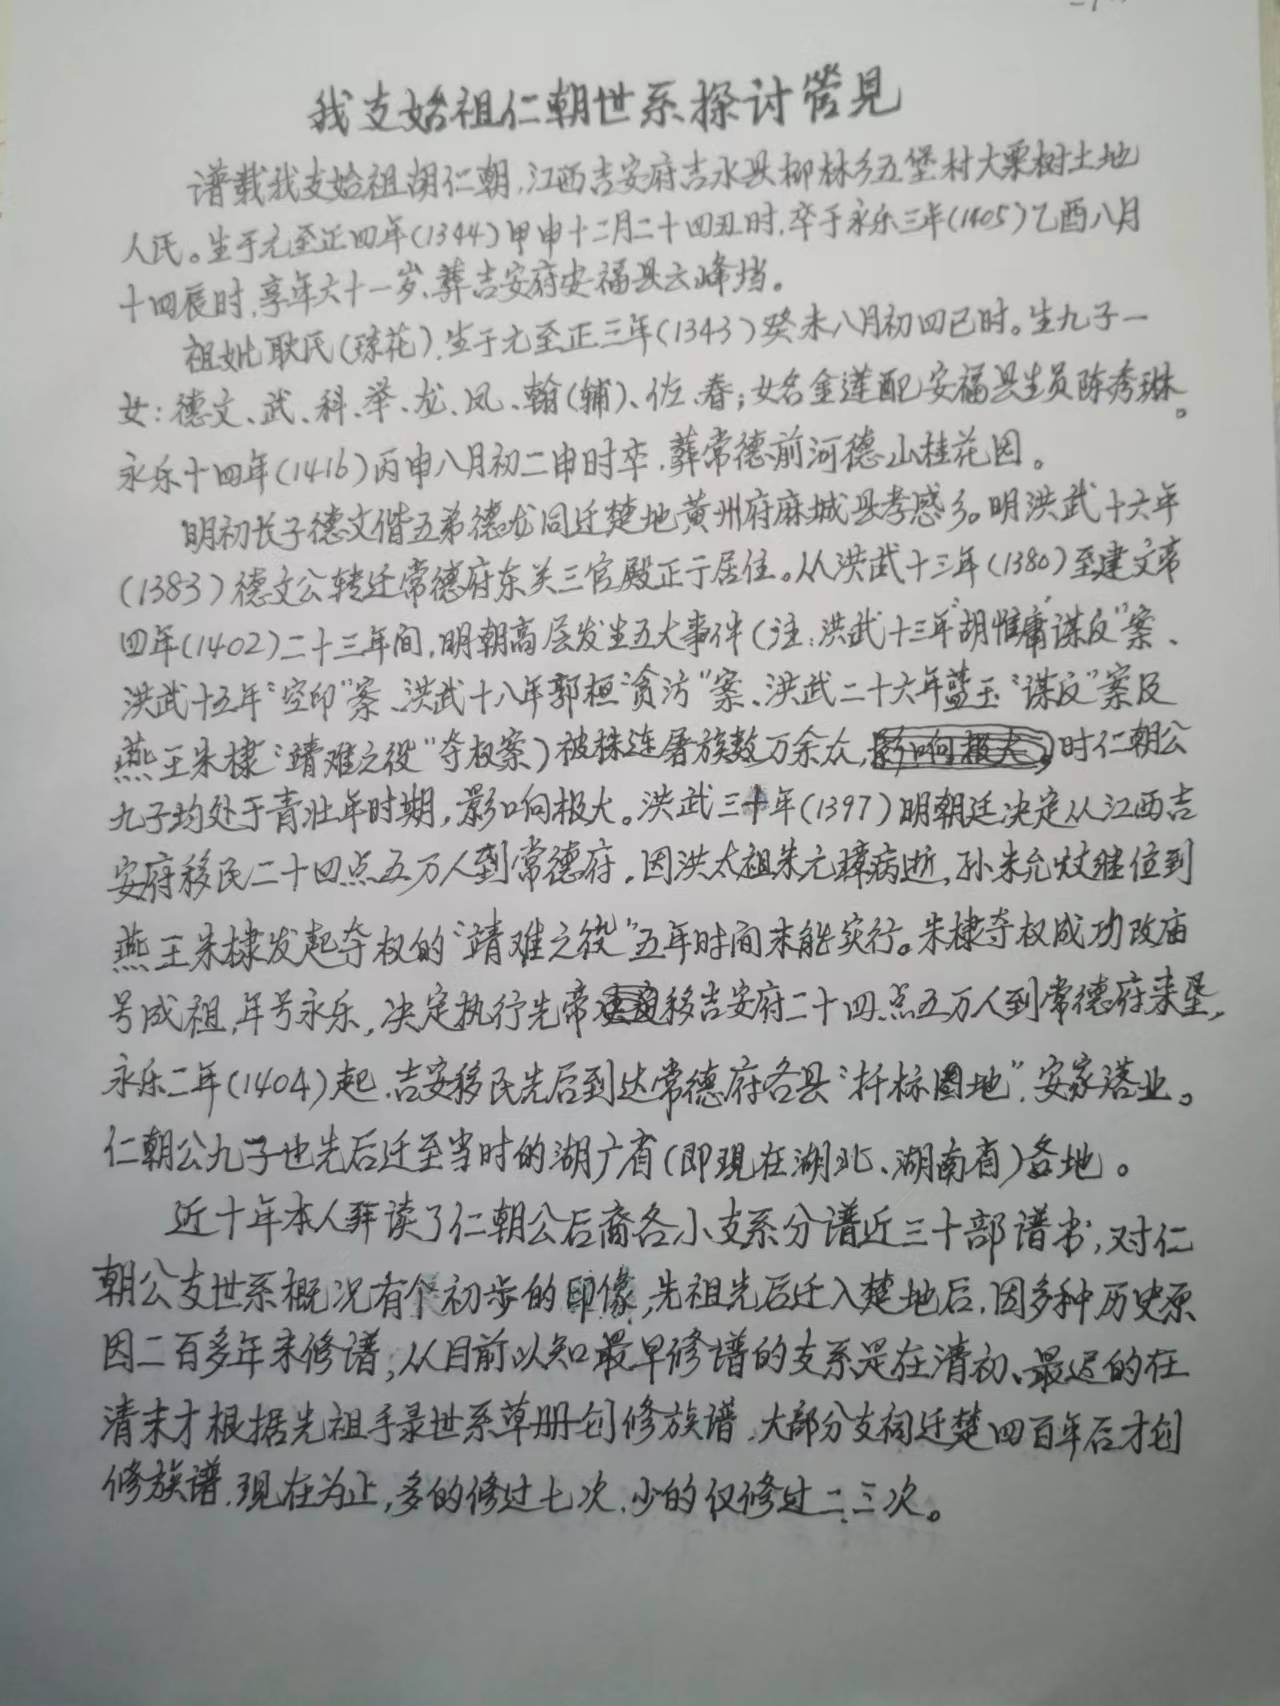 我支始祖仁朝世系探讨管见
谱载我支始祖胡仁朝,江西吉安府吉水县柳林乡五堡村大栗树土地
人氏。生于元至正四年(1344)甲申十二月二十四丑时,卒于永乐三年(1405)乙酉八月
十四辰时,享年六十一岁、葬吉安府安福县云峰垱。
祖妣耿氏(琼花),生于元至正三年(1343)癸未八月初四巳时。生九子一
女:德文、武、科、举、龙、凤、翰(辅)、佐、春;女名金莲配安福县生员陈秀琳。
永乐十四年(1416)丙申八月初二申时卒,葬常德前河德山桂花园。
明初长子德文偕五弟德龙同迁楚地黄州府麻城县孝感乡。明洪武十六年
(1383)德文公转迁常德府东关三官殿正于居住。从洪武十三年(1380)至建文帝
四年(1402)二十三年间,明朝高层发生五大事件(注:洪武十三年“胡惟庸谋反”案、
洪武十五年“空印”案、洪武十八年郭桓“贪污”案、洪武二十六年蓝玉“谋反”案及
燕王朱棣“靖难之役”夺权案)被株连屠族数万余众,影响极大,时仁朝公
九子均处于青壮年时期,影响极大。洪武三十年(1397)明朝廷决定从江西吉
安府移民二十四点五万人到常德府,因洪太祖朱元璋病逝,孙朱允炆继位到
燕王朱棣发起夺权的“靖难之役”五年时间未能实行。朱棣夺权成功改庙
号成祖,年号永乐,决定执行先帝移吉安府二十四点五万人到常德府来垦,
永乐二年(1404)起,吉安移民先后到达常德府各县“扦标圈地”,安家落业。
仁朝公九子也先后迁至当时的湖广省(即现在湖北、湖南省)各地。
近十年本人拜读了仁朝公后裔各小支系分谱近三十部谱书,对仁
朝公支世系概况有个初步的印像,先祖先后迁入楚地后,因多种历史原
因二百多年未修谱,从目前以知最早修谱的支系是在清初、最迟的在
清末才根据先祖手录世系草册创修族谱,大部分支祠迁楚四百年后才创
修族谱,现在为止,多的修过七次,少的仅修过二、三次。